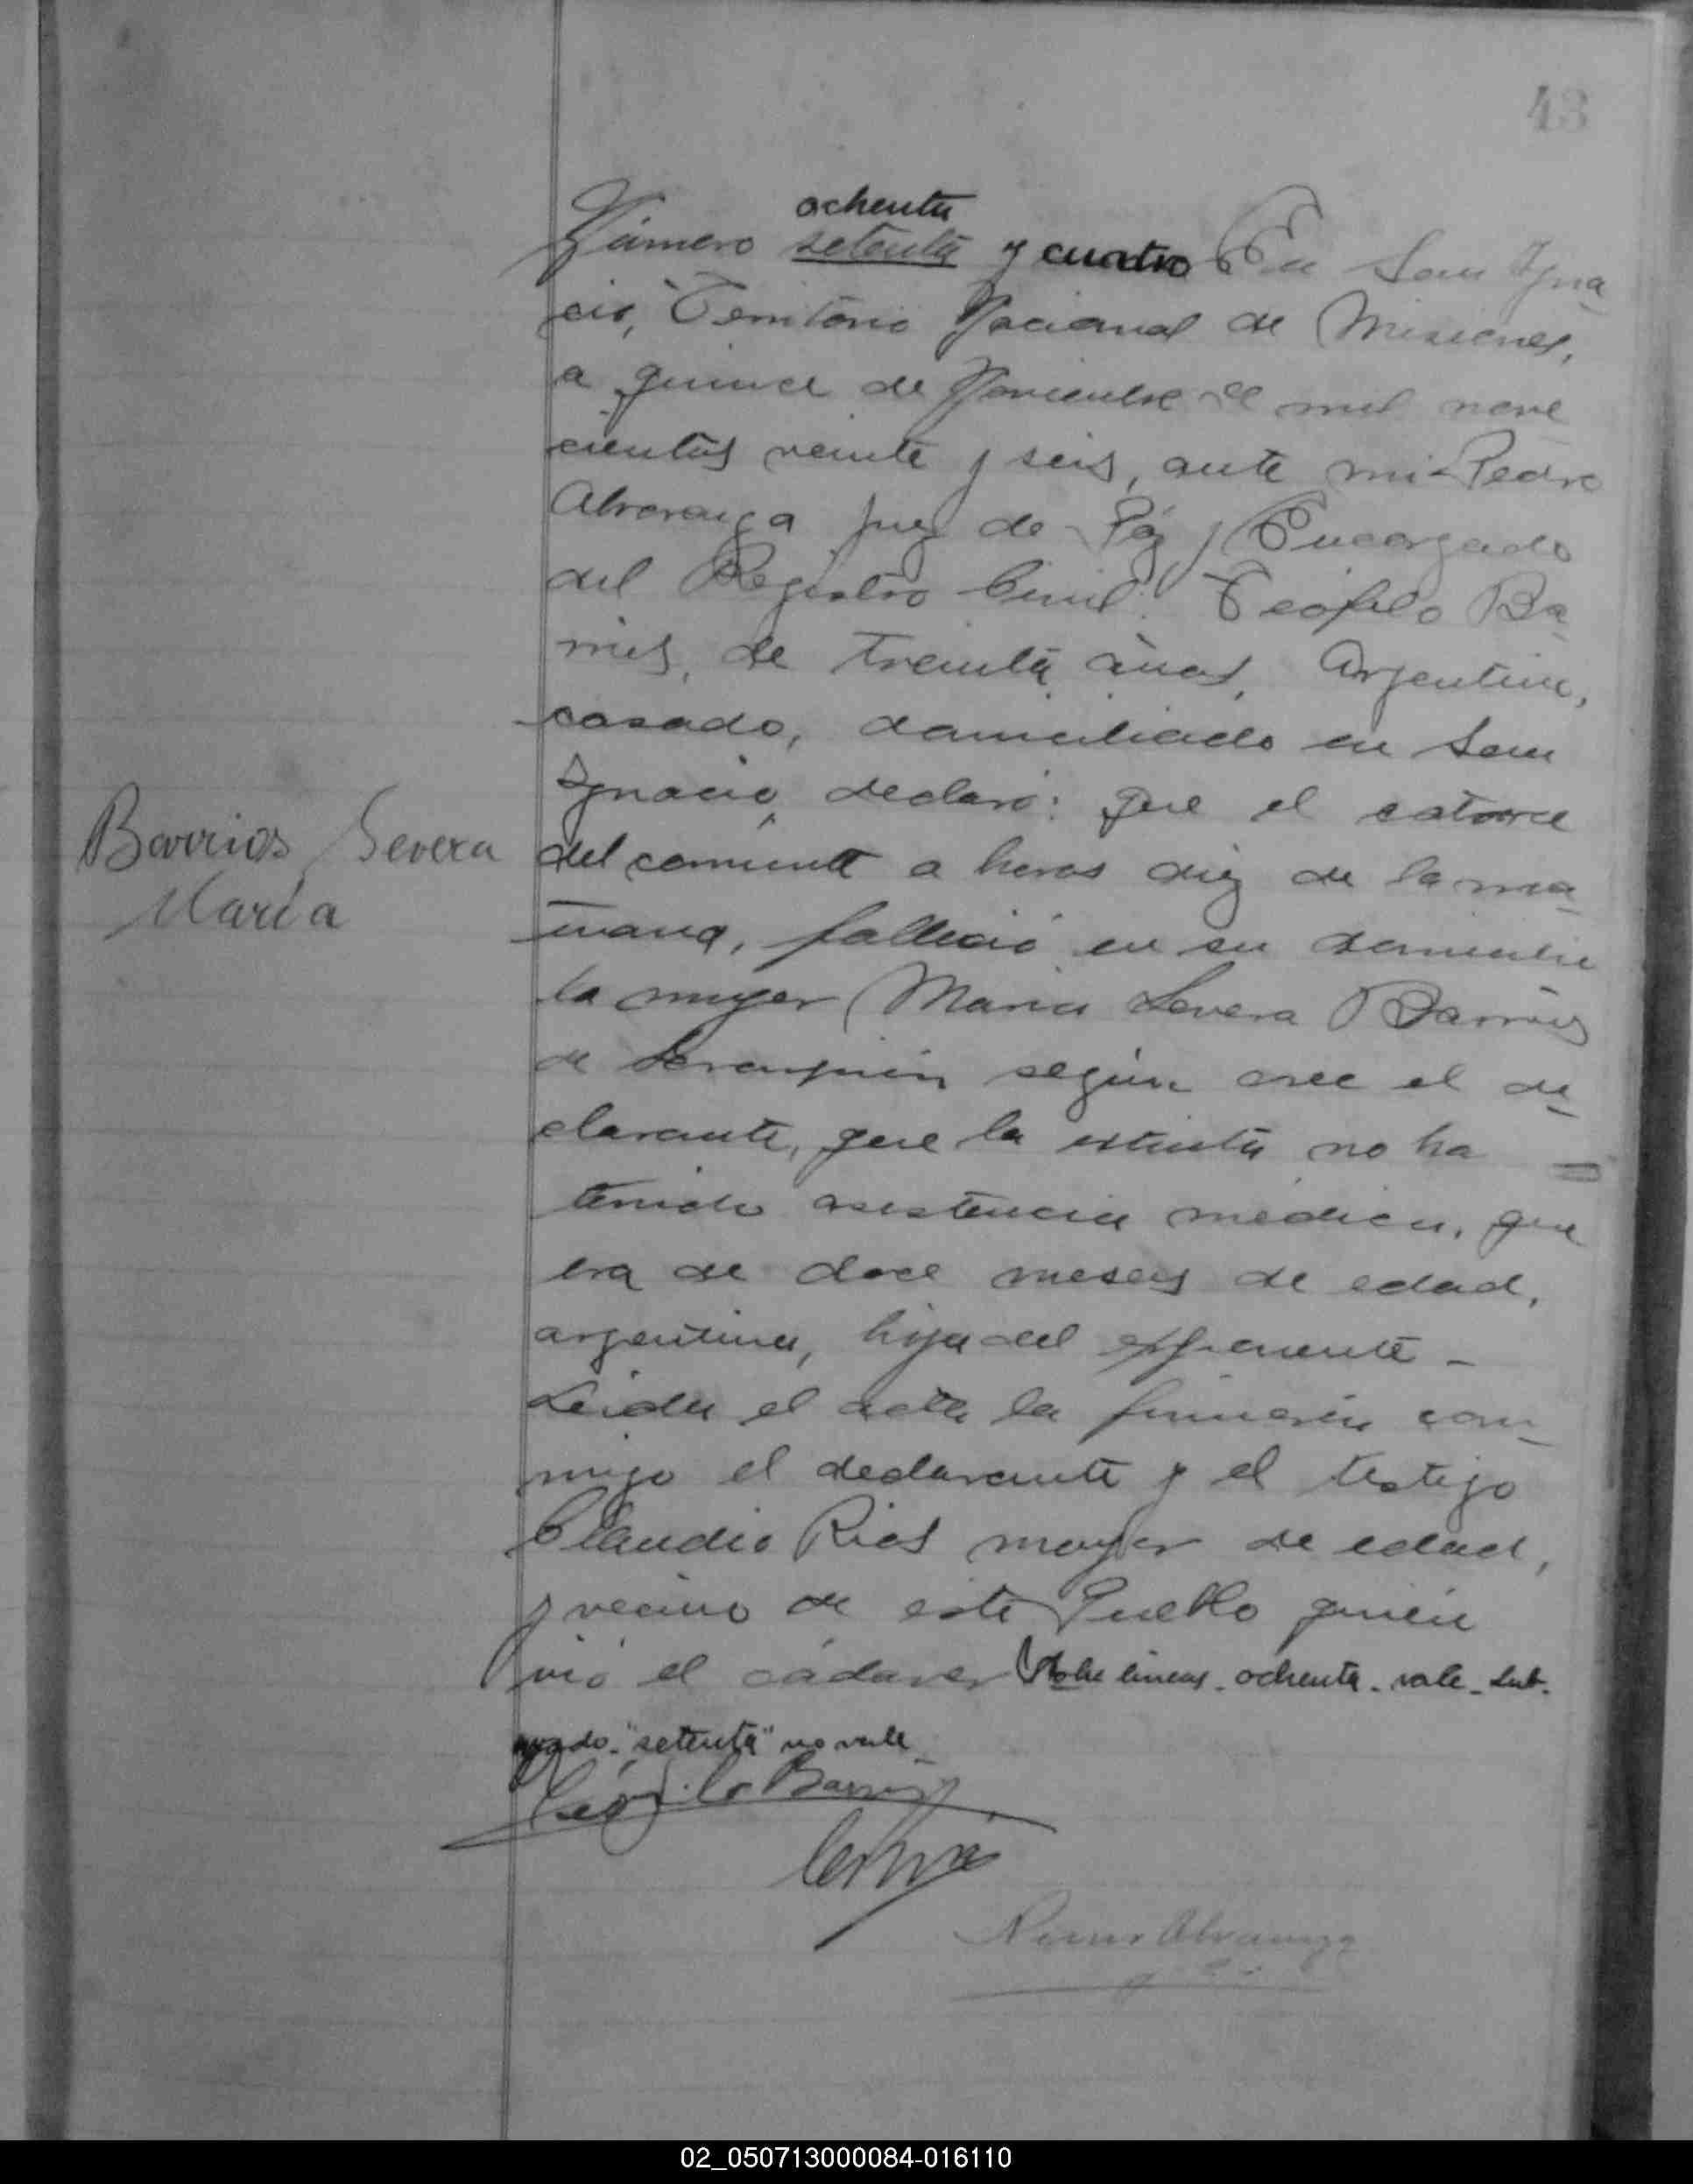 43
ochenta
Número setenta y cuatro En San Igna
cio, Territorio Nacional de Misiones,
a quince de Noviembre de mil nove
cientos veinte y seis, ante mi Pedro
Alvarenga Juez de Páz y Encargado
del Registro Civil: Teófilo Ba
rrios, de treinta años, Argentino,
casado, domiciliado en San
Ignacio, declaró: Que el catorce
Barrios Severa
María
del corriente a horas diez de la ma
ñana, falleció en su domicilio
la mujer Maria Severa Barrios
de Sarampión según cree el de
clarante, que la extinta no ha
tenido asistencia médica, que
era de doce meses de edad,
argentina, hija del exponente -
Leida el acta la firmarón con
migo el declarante y el testigo
Claudio Rios mayor de edad,
y vecino de este Pueblo quién
vió el cádaver Sobre lineas - ochenta - vale - Sub-
rayado - "setenta" no vale -
Teófilo Barrios
Alvarenga
02_050713000084-016110